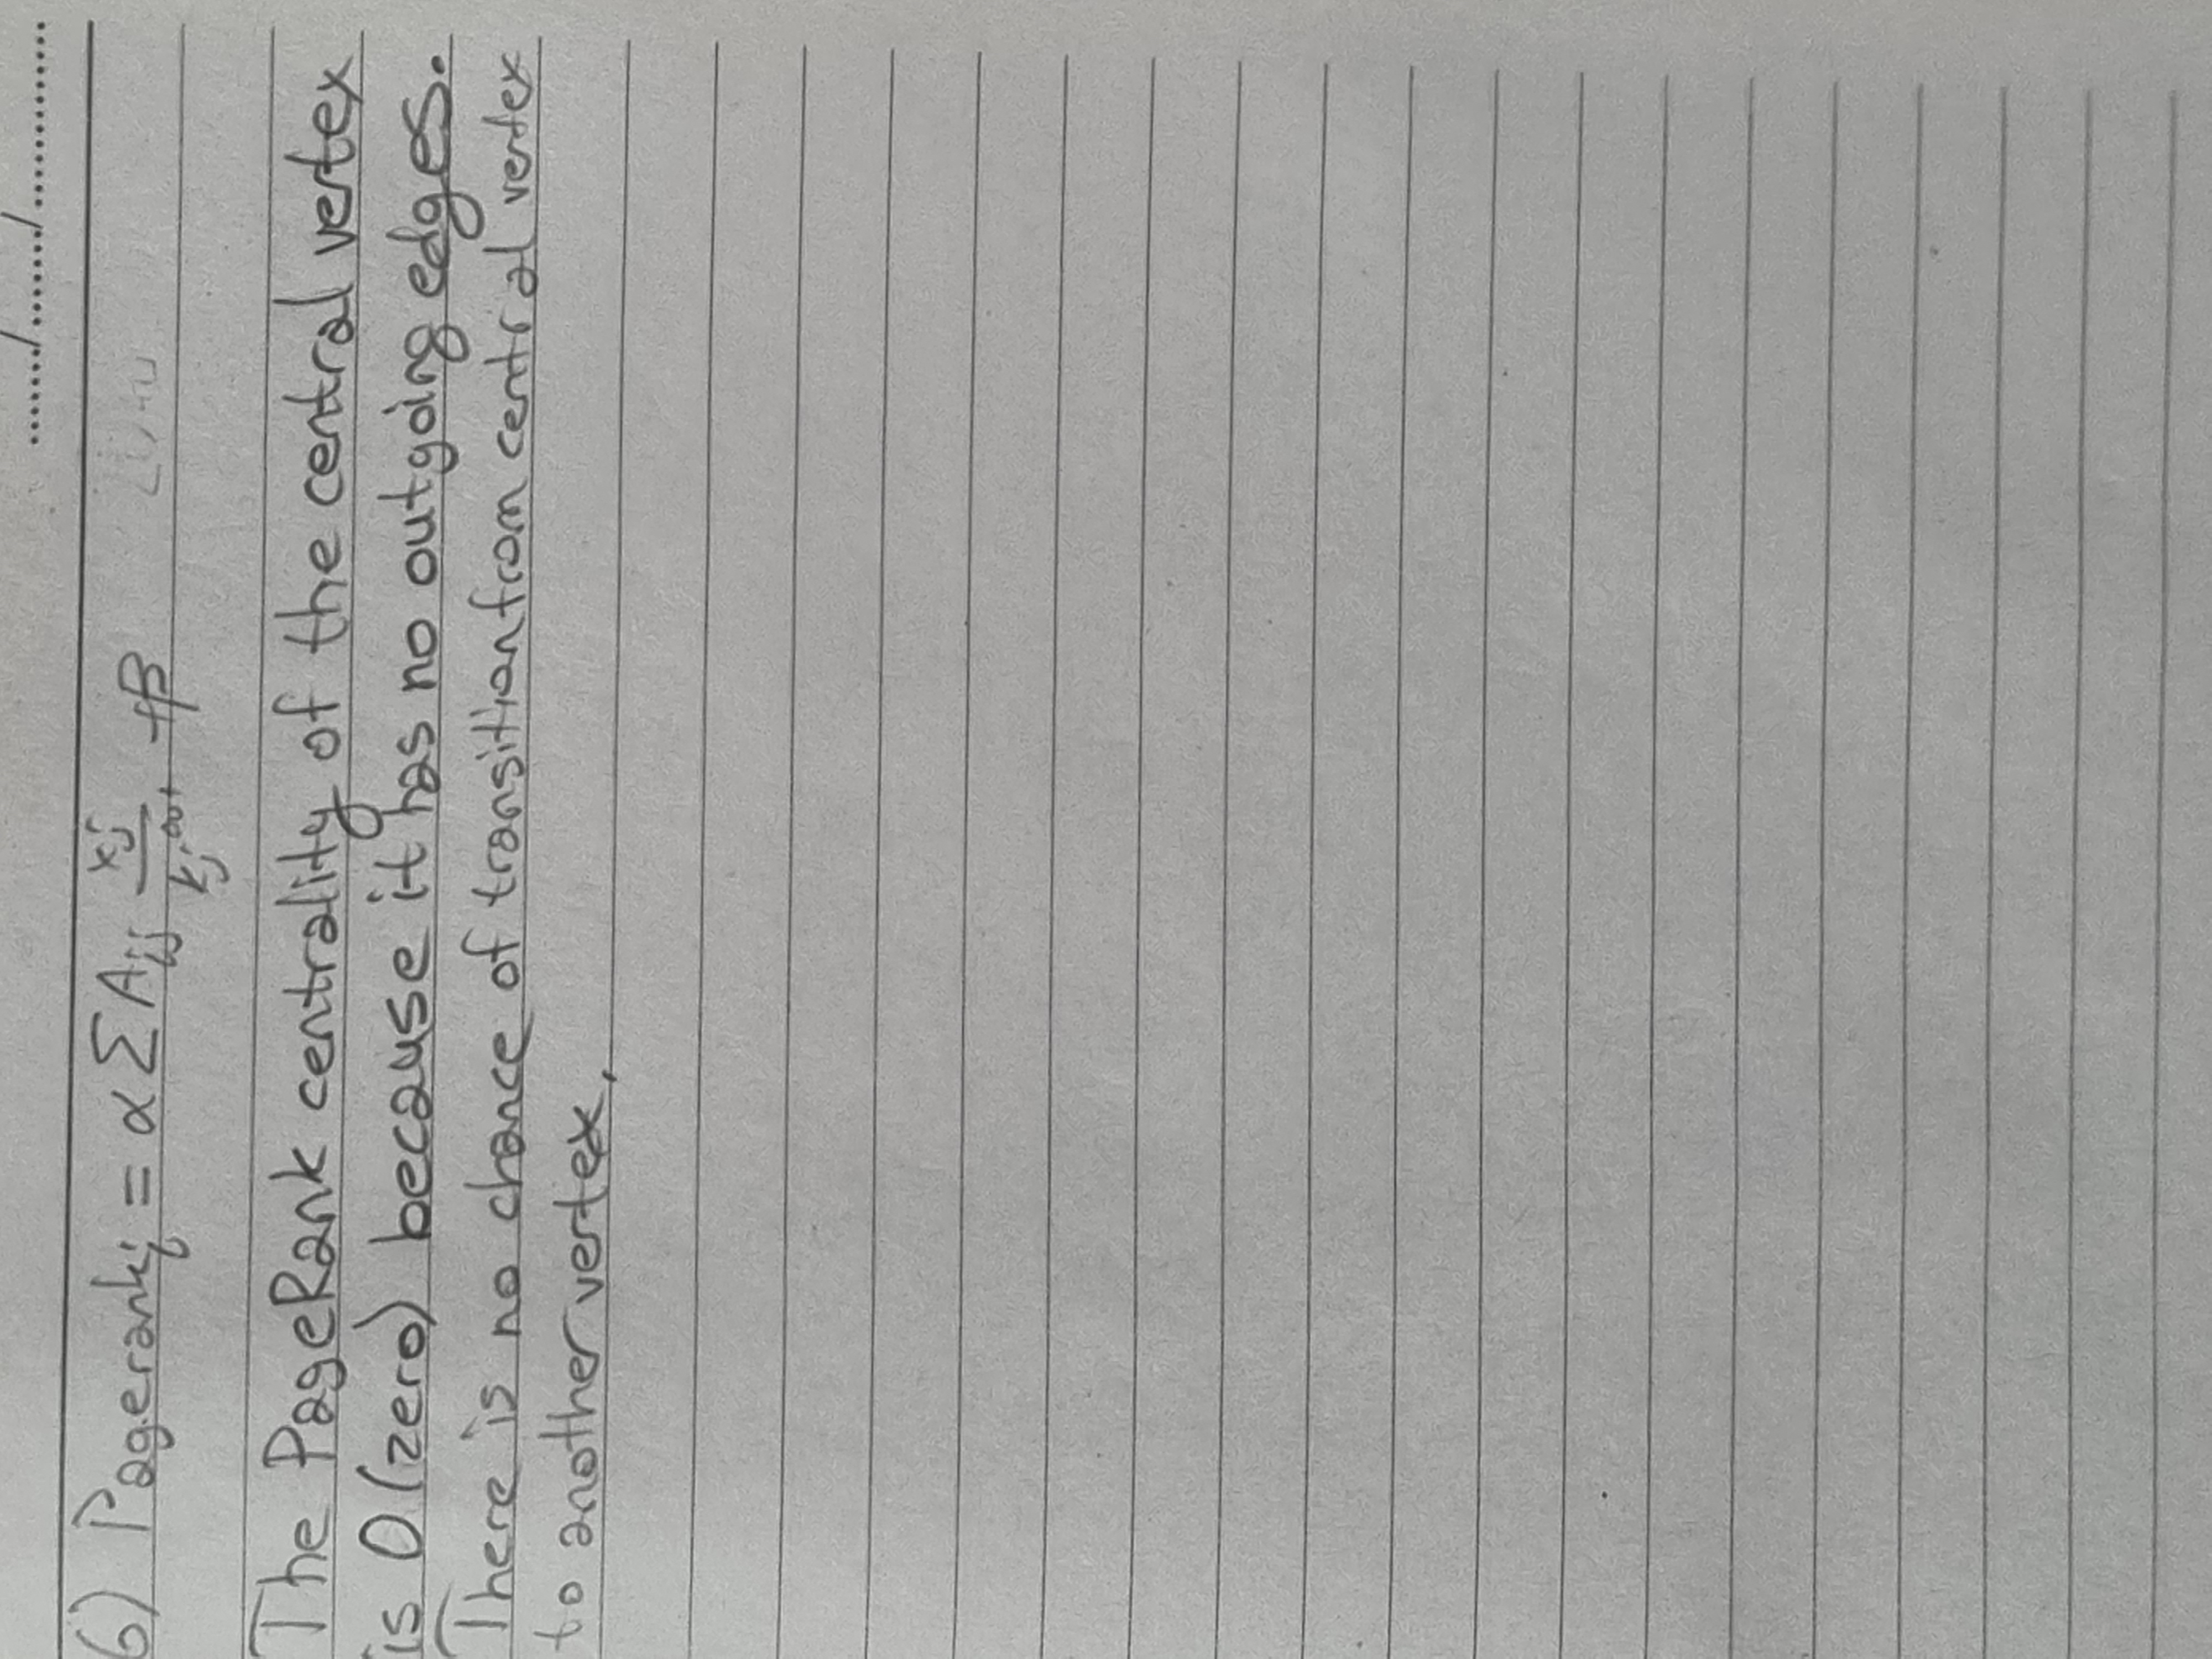 ......./......./.............
6) Pageranki = α Σ Aij xj/kj^out +β
The PageRank centrality of the central vertex
is 0 (zero) because it has no outgoing edges.
There is no chance of transition from central vertex
to another vertex,